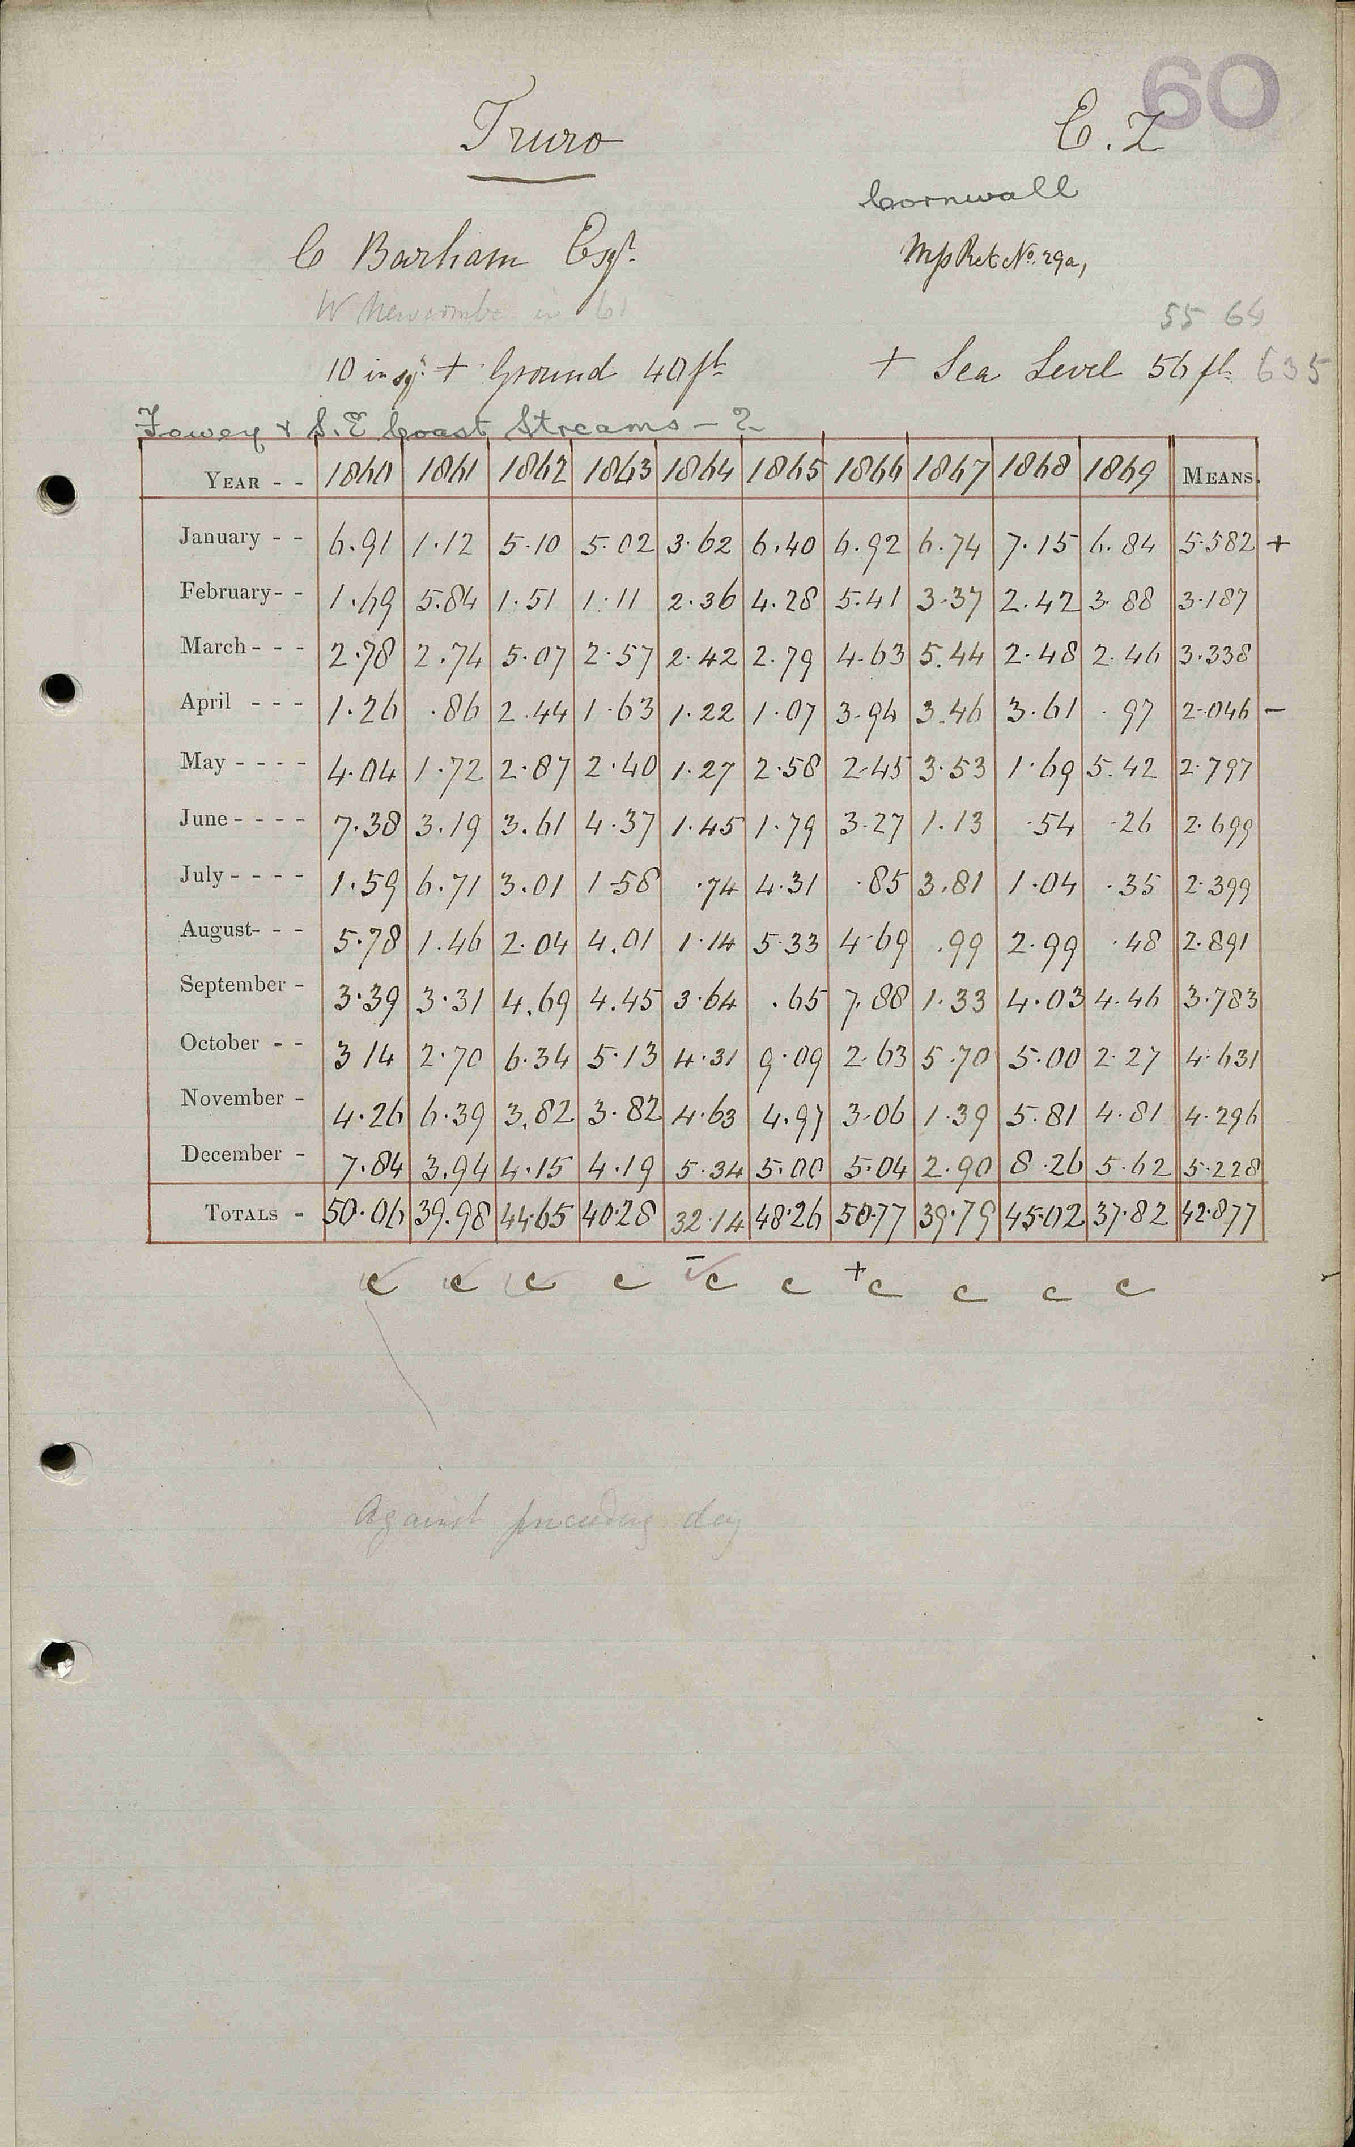 60
Truro C. Z
Cornwall
C Barham Esqr.
Mss Ret No. 29a,
W Newcombe in 61
55 64
10 in sq. + Ground 40 ft + Sea Level 56 ft. 635
Fowey & S.E Coast Streams - 2
YEAR - - 1860 1861 1862 1863 1864 1865 1866 1867 1868 1869 MEANS.
January - - 6.91 1.12 5.10 5.02 3.62 6.40 6.92 6.74 7.15 6.84 5.582 +
February - - 1.69 5.84 1.51 1.11 2.36 4.28 5.41 3.37 2.42 3.88 3.187
March - - - 2.78 2.74 5.07 2.57 2.42 2.79 4.63 5.44 2.48 2.46 3.338
April - - - 1.26 .86 2.44 1.63 1.22 1.07 3.94 3.46 3.61 .97 2.046 -
May - - - - 4.04 1.72 2.87 2.40 1.27 2.58 2.45 3.53 1.69 5.42 2.797
June - - - - 7.38 3.19 3.61 4.37 1.45 1.79 3.27 1.13 .54 .26 2.699
July - - - - 1.59 6.71 3.01 1.58 .74 4.31 .85 3.81 1.04 .35 2.399
August - - - 5.78 1.46 2.04 4.01 1.14 5.33 4.69 .99 2.99 .48 2.891
September - 3.39 3.31 4.69 4.45 3.64 .65 7.88 1.33 4.03 4.46 3.783
October - - 3 14 2.70 6.34 5.13 4.31 9.09 2.63 5.70 5.00 2.27 4.631
November - 4.26 6.39 3.82 3.82 4.63 4.97 3.06 1.39 5.81 4.81 4.296
December - 7.84 3.94 4.15 4.19 5.34 5.00 5.04 2.90 8.26 5.62 5.228
TOTALS - 50.06 39.98 44.65 40.28 32.14 48.26 50.77 39.79 45.02 37.82 42.877
c c c c - c c + c c c c
Against preceding day